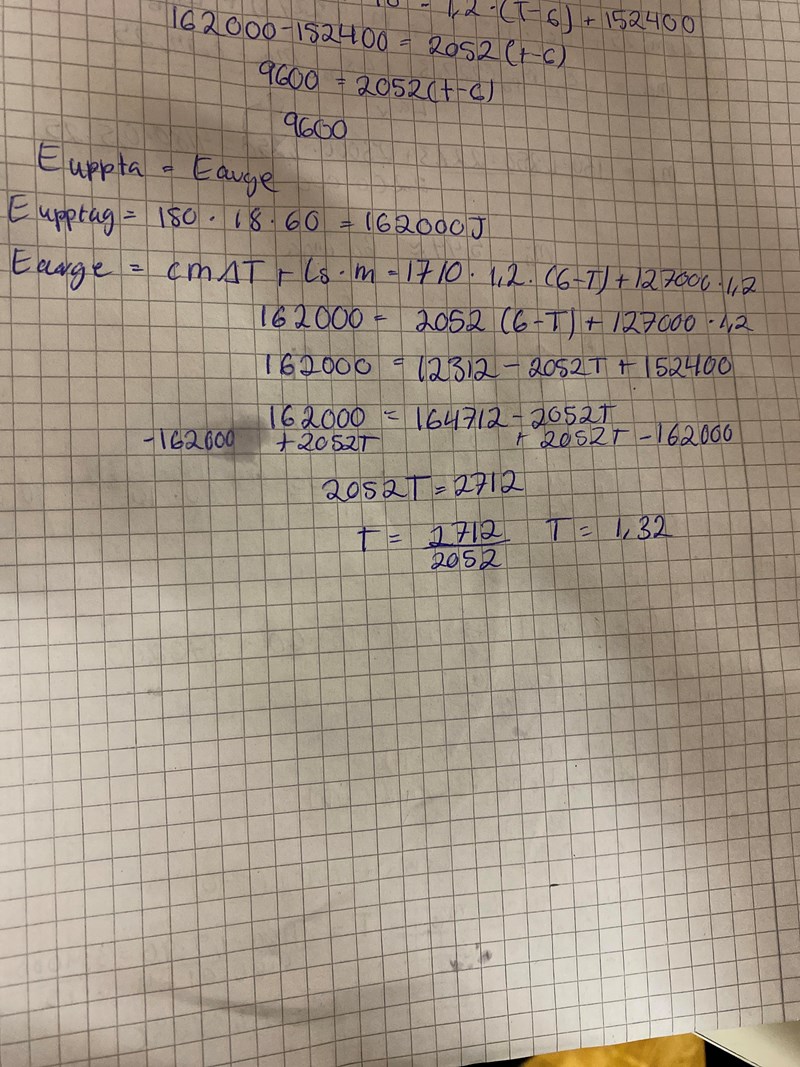 1,2·(T-6)+152400
162000-152400 = 2052(t-6)
9600 = 2052(t-6)
9600
Euppta = Eavge
Eupptag = 150·18·60 = 162000J
Eavge = cm∆T + ls·m = 1710·1,2·(6-T)+127000·1,2
162000 = 2052 (6-T) + 127000·1,2
162000 = 12312 - 2052T + 152400
162000 = 164712 - 2052T
-162000 +2052T + 2052T -162000
2052T = 2712
T = 2712/2052 T = 1,32